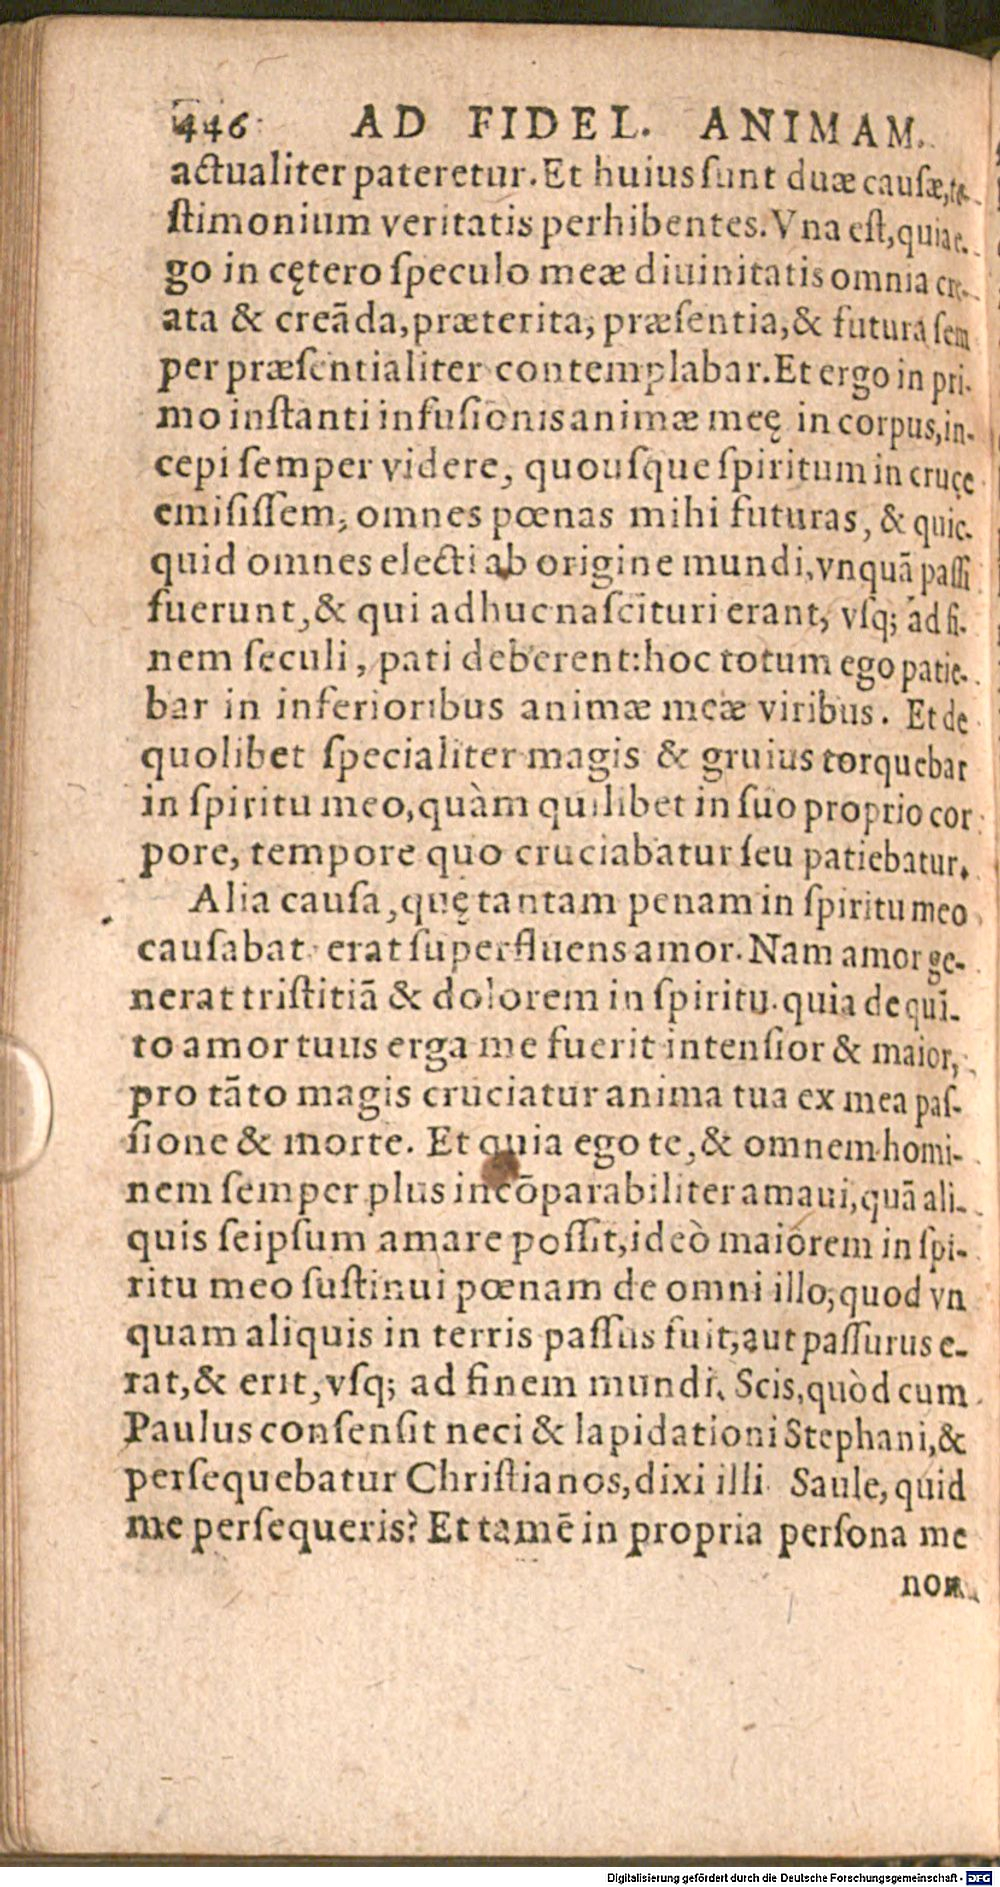 446 AD FIDEL. ANIMAM.
actualiter pateretur. Et huius sunt duæ causæ, te-
stimonium veritatis perhibentes. Vna est, quia e-
go in cętero speculo meæ diuinitatis omnia cre-
ata & creãda, præterita, præsentia, & futura sem
per præsentialiter contemplabar. Et ergo in pri-
mo instanti infusionis animæ meę in corpus, in-
cepi semper videre, quousque spiritum in cruce
emisissem, omnes pœnas mihi futuras, & quic-
quid omnes electi ab origine mundi, vnquã passi
fuerunt, & qui adhuc nascituri erant, vsq; ad fi-
nem seculi, pati deberent: hoc totum ego patie-
bar in inferioribus animæ meæ viribus. Et de
quolibet specialiter magis & gruius torquebar
in spiritu meo, quàm quilibet in suo proprio cor
pore, tempore quo cruciabatur seu patiebatur.
Alia causa, quę tantam penam in spiritu meo
causabat erat superfluens amor. Nam amor ge-
nerat tristitiã & dolorem in spiritu. quia de quã-
to amor tuus erga me fuerit intensior & maior,
pro tãto magis cruciatur anima tua ex mea pas-
sione & morte. Et quia ego te, & omnem homi-
nem semper plus incõparabiliter amaui, quã ali-
quis seipsum amare possit, ideò maiorem in spi-
ritu meo sustinui pœnam de omni illo, quod vn
quam aliquis in terris passus fuit, aut passurus e-
rat, & erit, vsq; ad finem mundi. Scis, quòd cum
Paulus consensit neci & lapidationi Stephani, &
persequebatur Christianos, dixi illi Saule, quid
me persequeris? Et tamẽ in propria persona me
non
Digitalisierung gefördert durch die Deutsche Forschungsgemeinschaft - DFG